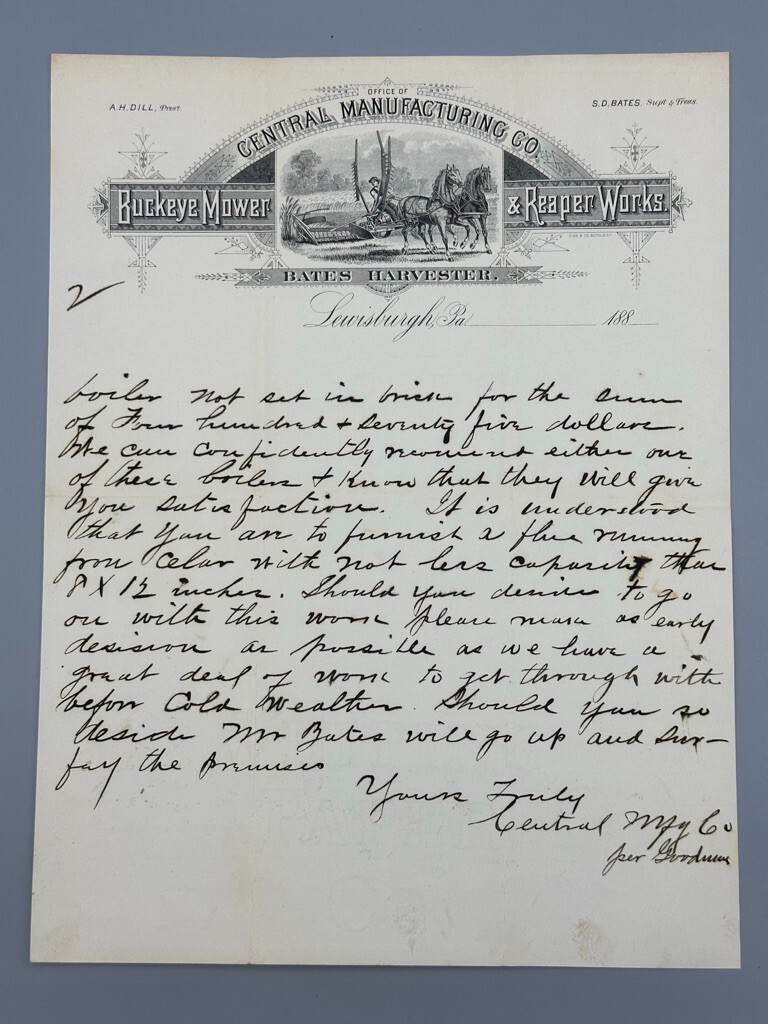 A.H. DILL, Prest.
OFFICE OF
S.D. BATES, Supt & Treas.
CENTRAL MANUFACTURING CO.
BUCKEYE MOWER & REAPER WORKS.
BATES HARVESTER.
2
Lewisburgh, Pa. 188
boiler not set in brick for the sum
of Four hundred & seventy five dollars.
We can confidently recoment either one
of these boilers & know that they will give
you satisfaction. It is understood
that you are to furnish a flue running
from Celar with not less capacity than
8 X 12 inches. Should you deside to go
on with this work please make as early
desision as possible as we have a
great deal of work to get through with
before Cold Weather. Should you so
deside Mr Bates will go up and Sur-
fay the premises
Yours Truly
Central Mfg Co
per